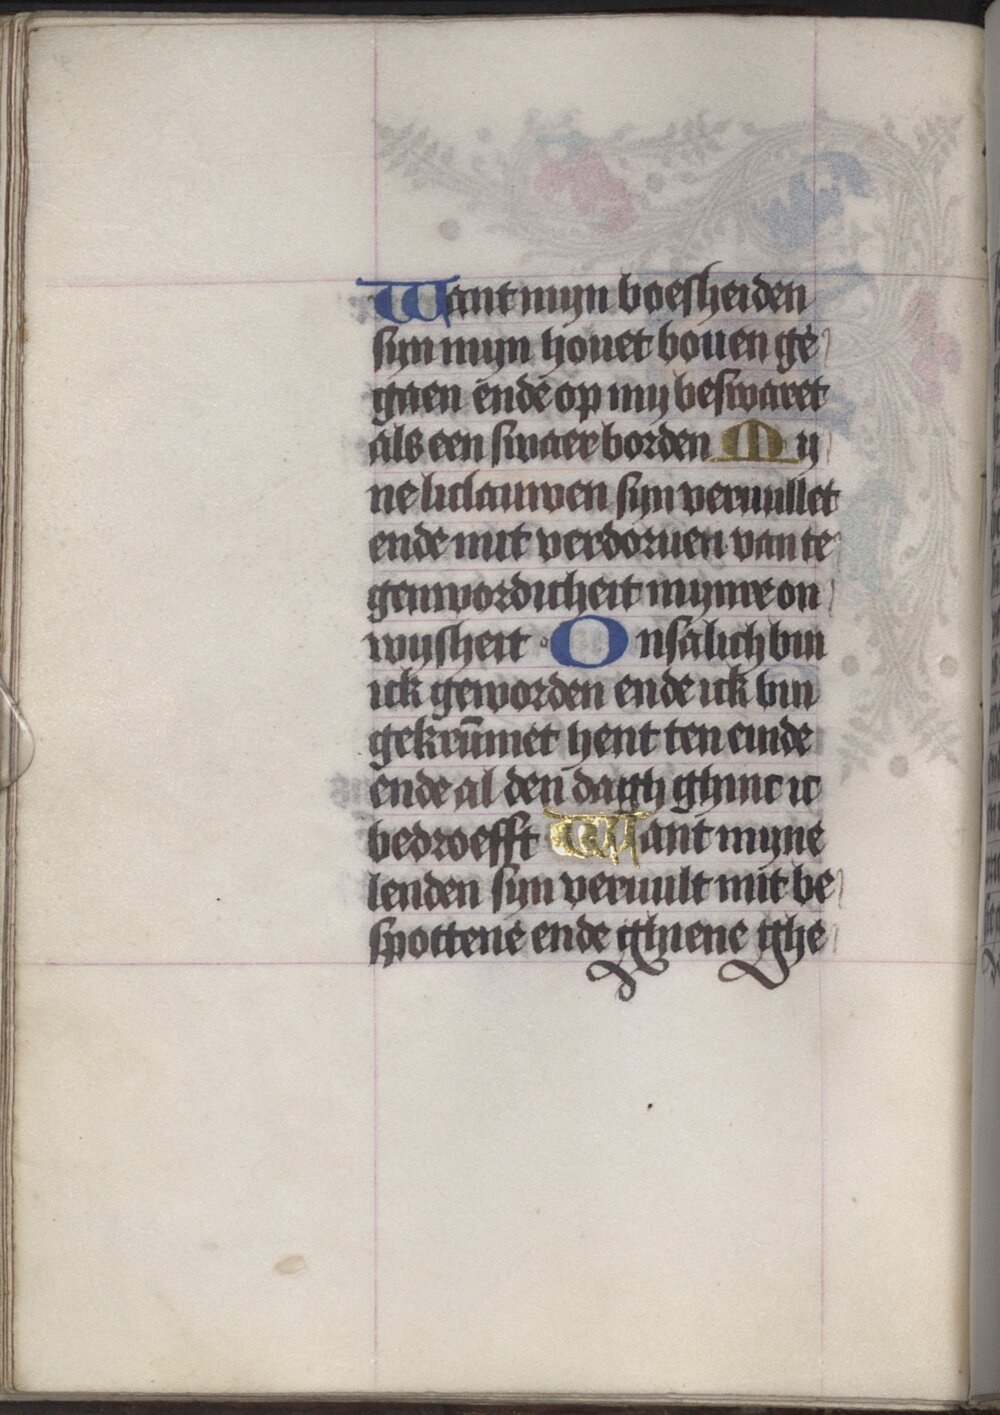 Want mijn boesheiden
sijn mijn houet bouen ge
gaen ende op mij beswaret
als een swaer borden Mij
ne liclauwen sijn veruullet
ende mit verdoruen van te
genwordicheit mijnre on
wijsheit Onsalich bin
ick geworden ende ick bin
gekrūmet hent ten einde
ende al den dagh ghinc ic
bedroefft Want mijne
lenden sijn veruult mit be
spottene ende ghiene ghe